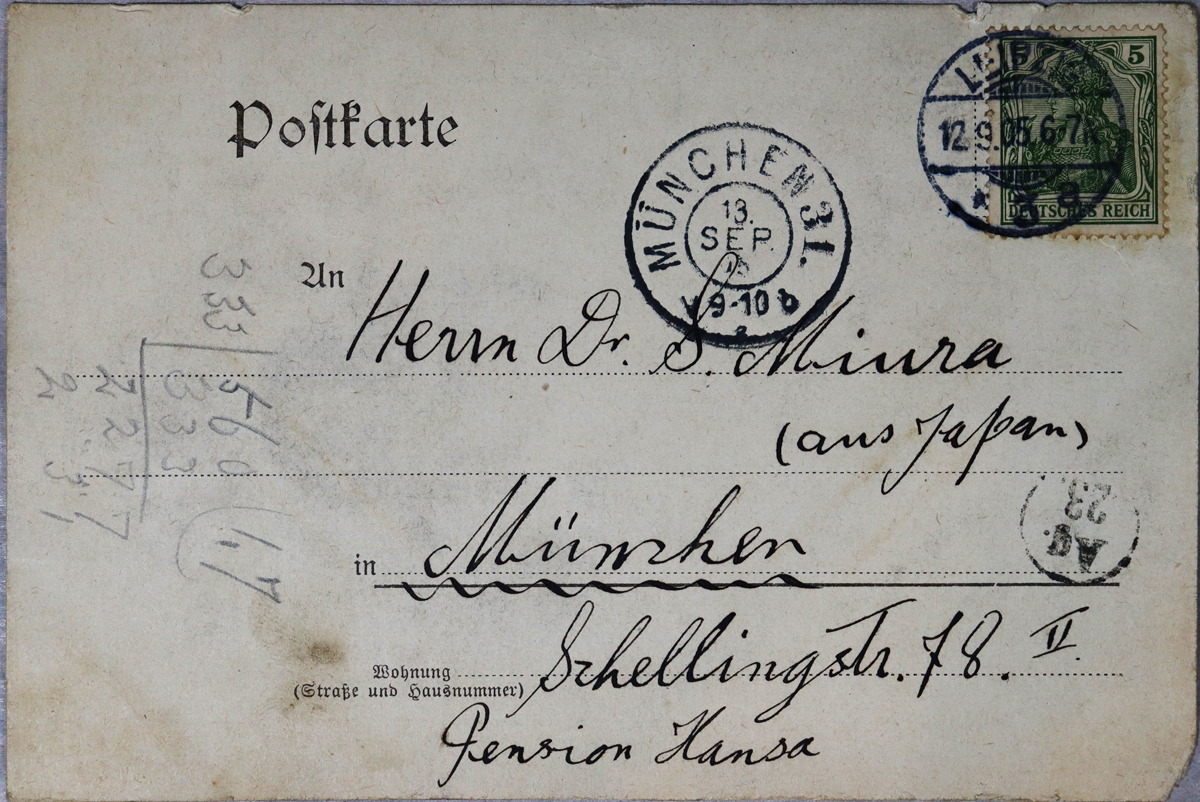 Postkarte
5
DEUTSCHES REICH
LEIPZIG
12.9.05.6-7
3 a
MÜNCHEN 31.
13.
SEP.
9-10
An
Herrn Dr. S. Miura
(aus Japan)
in München
Ag.
23
Wohnung
(Straße und Hausnummer)
Schellingstr. 78. II.
Pension Hansa
333
560
333
2277
1.7